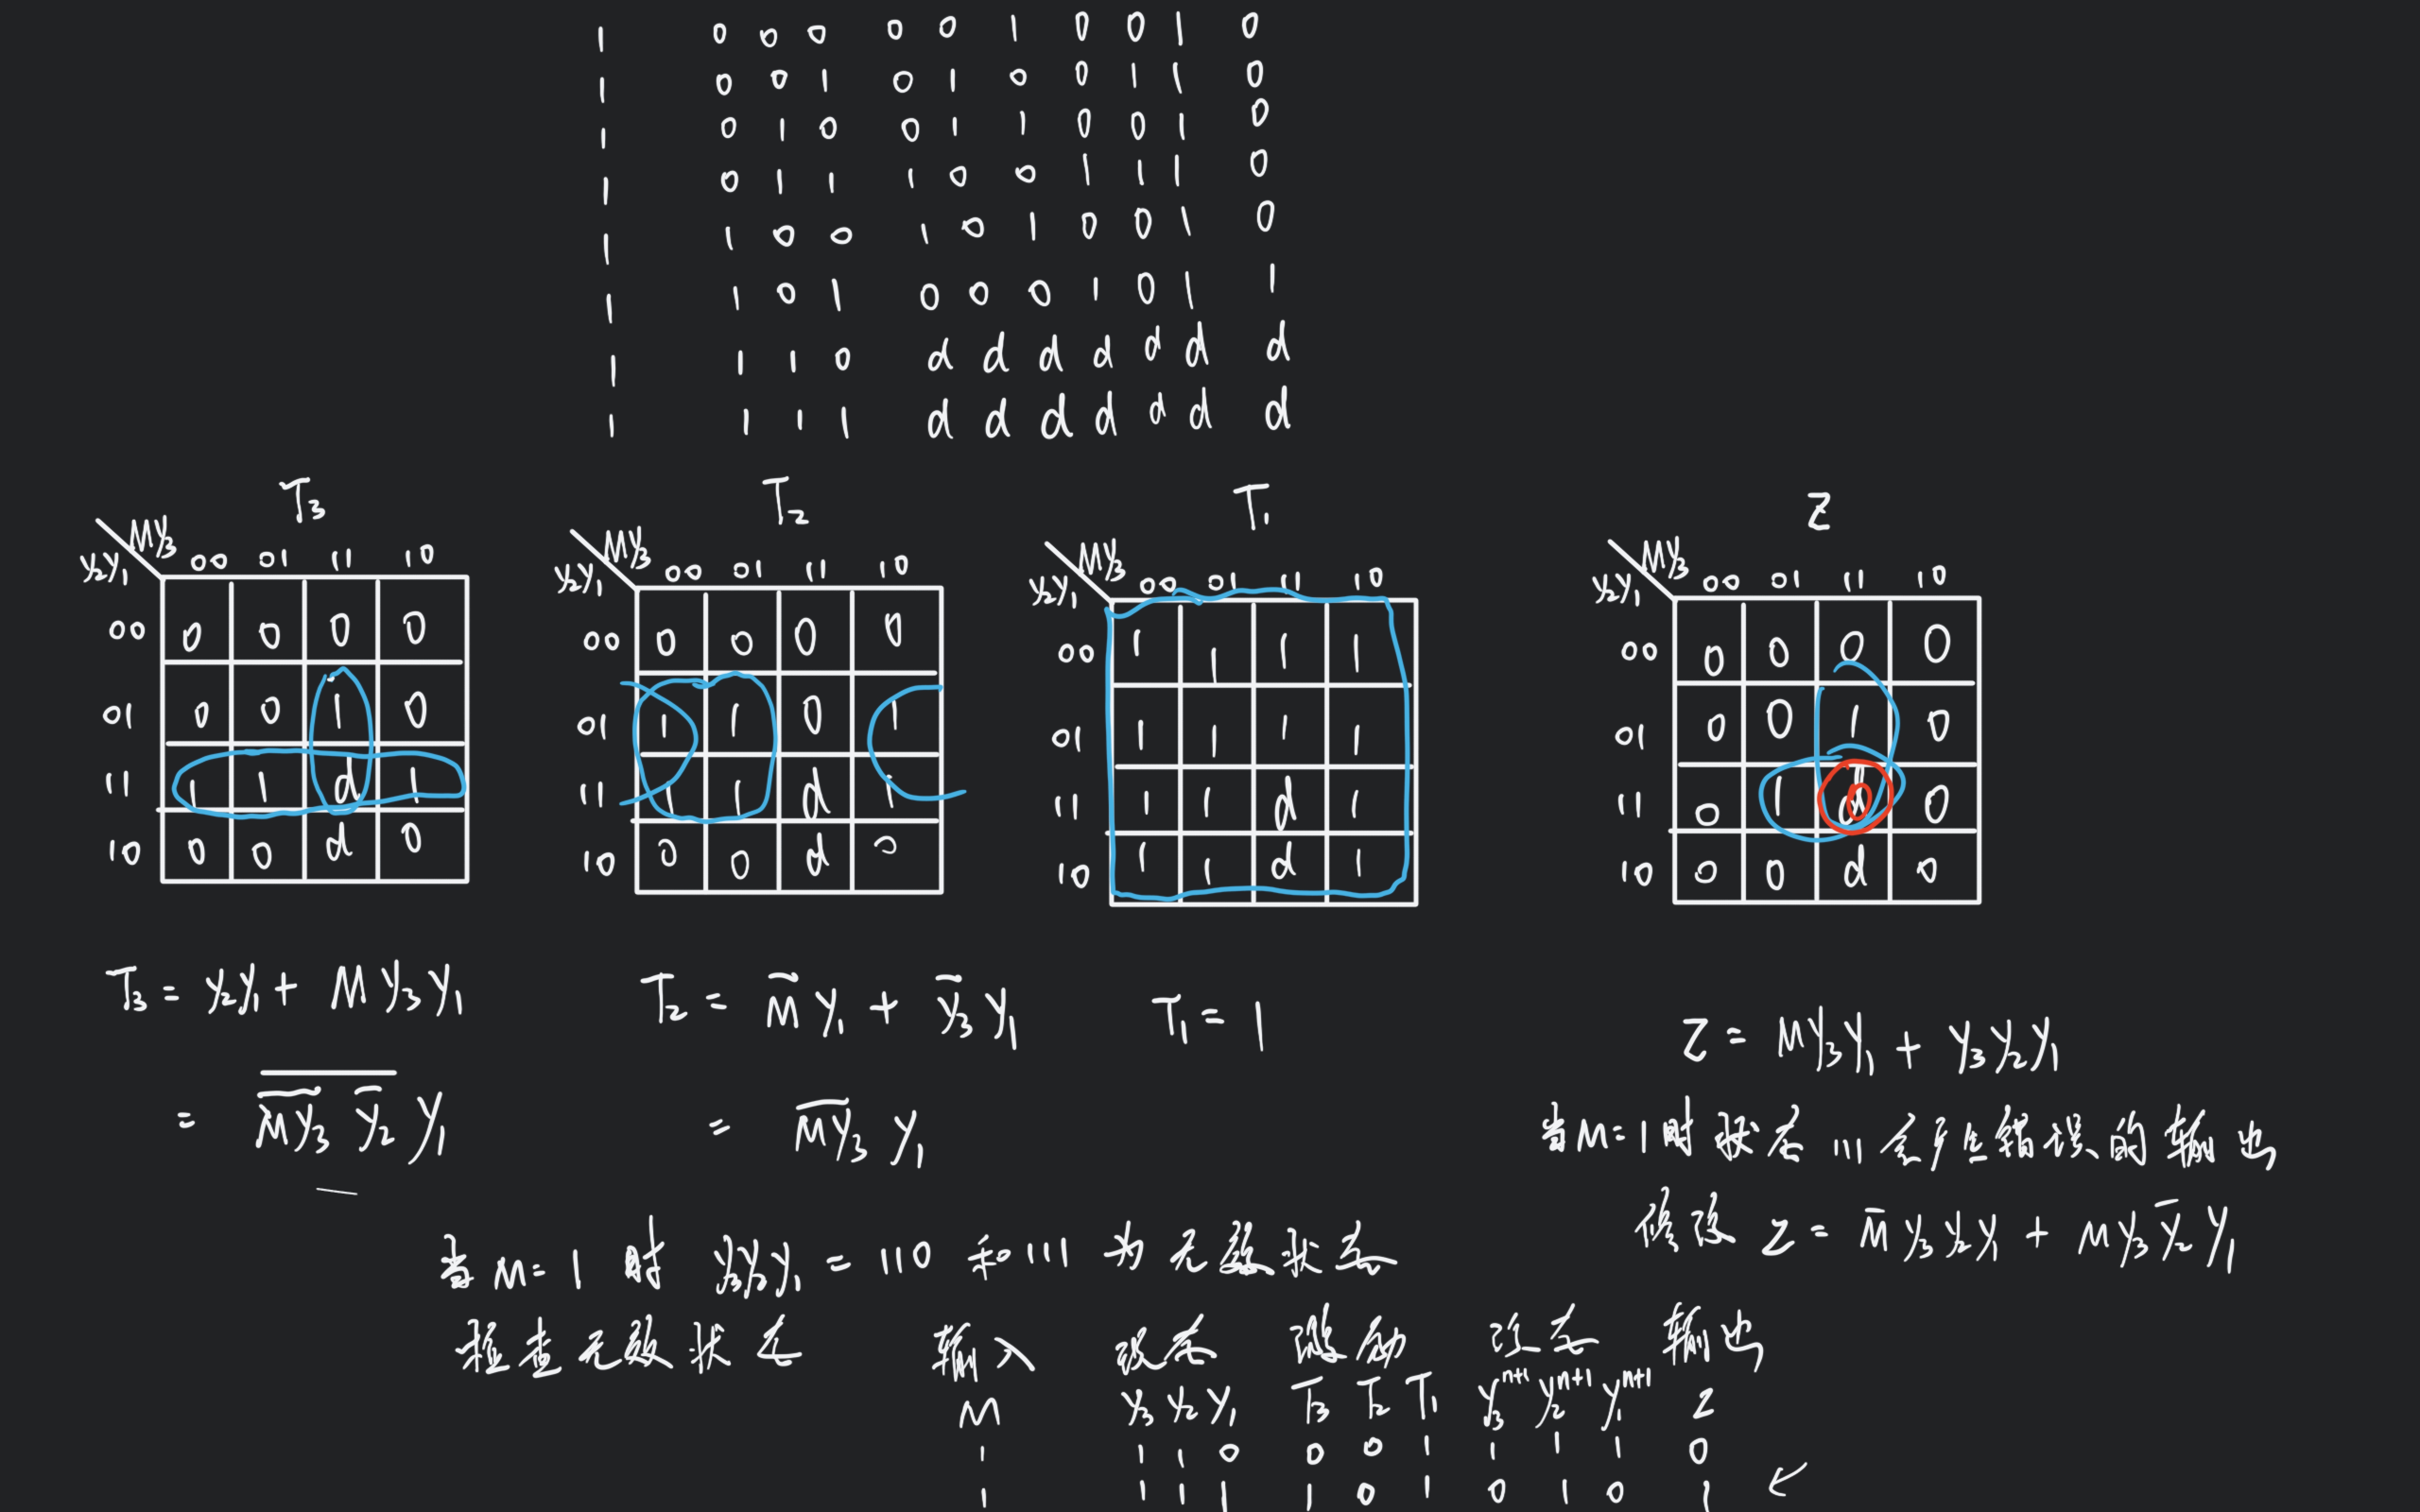 1 0 0 0 0 0 1 0 0 1 0
1 0 0 1 0 1 0 0 1 1 0
1 0 1 0 0 1 1 0 0 1 0
1 0 1 1 1 0 0 1 1 1 0
1 1 0 0 1 0 1 0 0 1 0
1 1 0 1 0 0 0 1 0 1 1
1 1 1 0 d d d d d d d
1 1 1 1 d d d d d d d
T₃
My₃
y₂y₁ 00 01 11 10
00 0 0 0 0
01 0 0 1 0
11 1 1 d 1
10 0 0 d 0
T₃ = y₂y₁ + My₃y₁
= \overline{\overline{My₃} \overline{y₂}} y₁
T₂
My₃
y₂y₁ 00 01 11 10
00 0 0 0 0
01 1 1 0 1
11 1 1 d 1
10 0 0 d 0
T₂ = \overline{M} y₁ + \overline{y₃} y₁
= \overline{My₃} y₁
T₁
My₃
y₂y₁ 00 01 11 10
00 1 1 1 1
01 1 1 1 1
11 1 1 d 1
10 1 1 d 1
T₁ = 1
Z
My₃
y₂y₁ 00 01 11 10
00 0 0 0 0
01 0 0 1 0
11 0 1 d 0
10 0 0 d 0
Z = My₃y₁ + y₃y₂y₁
当M=1时状态111会产生错误的输出
修改 Z = \overline{M} y₃y₂y₁ + My₃\overline{y₂}y₁
当M=1时 y₃y₂y₁ = 110 和 111 为无效状态
检查无效状态 输入 现态 激励 次态 输出
M y₃ y₂ y₁ T₃ T₂ T₁ y₃ⁿ⁺¹ y₂ⁿ⁺¹ y₁ⁿ⁺¹ Z
1 1 1 0 0 0 1 1 1 1 0
1 1 1 1 1 0 1 0 1 0 1 ←